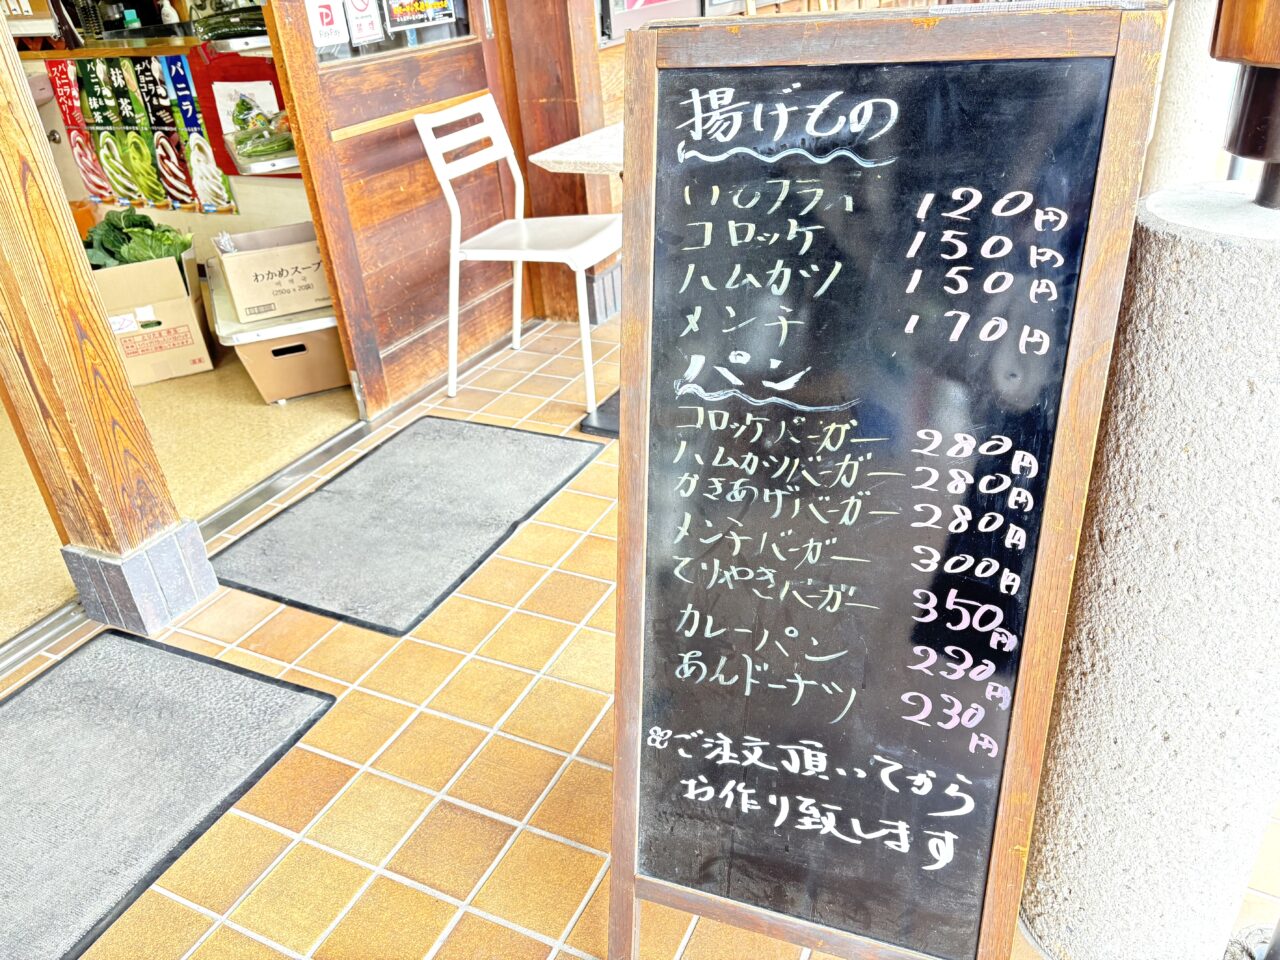 揚げもの
いもフライ 120円
コロッケ 150円
ハムカツ 150円
メンチ 170円
パン
コロッケバーガー 280円
ハムカツバーガー 280円
かきあげバーガー 280円
メンチバーガー 300円
てりやきバーガー 350円
カレーパン 230円
あんドーナツ 230円
※ご注文頂いてから
お作り致します
バニラ&ストロベリー
バニラ&抹茶
抹茶
バニラ&チョコレート
バニラ
わかめスープ
(250g×20袋)
PayPay